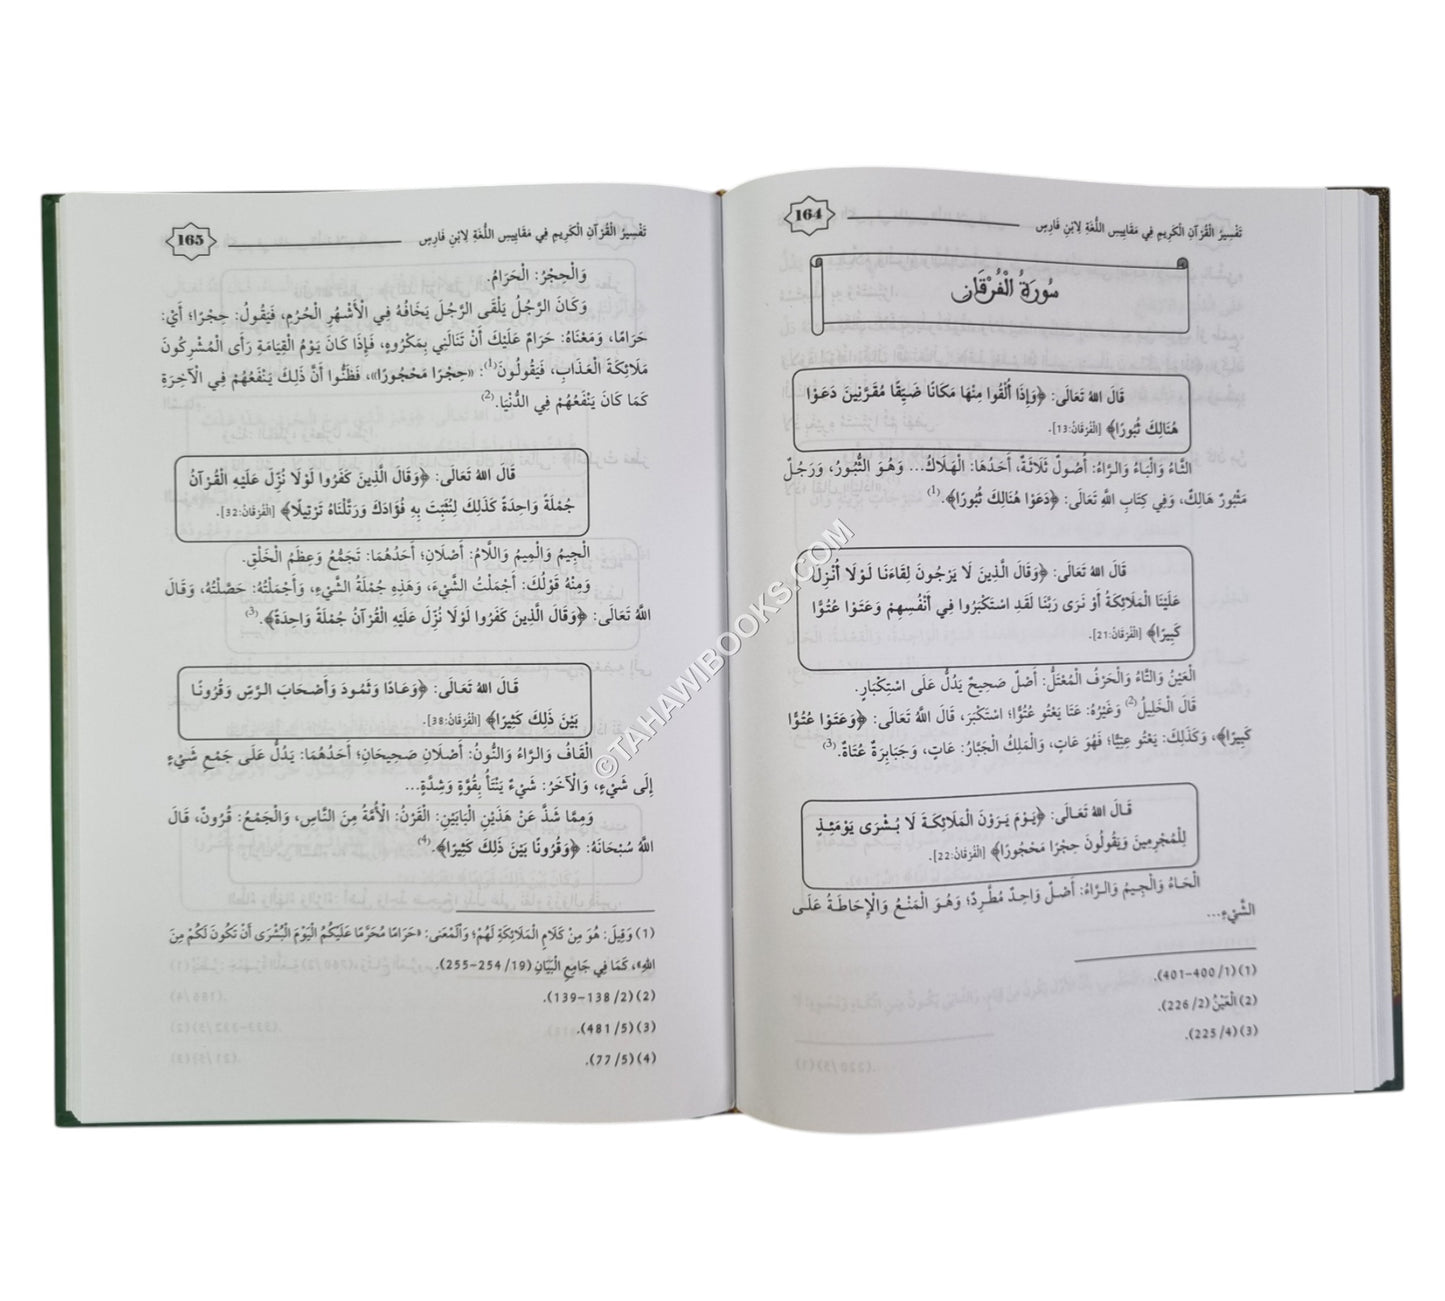 تَفْسِيرُ الْقُرْآنِ الْكَرِيمِ فِي مَقَايِيسِ اللُّغَةِ لِابْنِ فَارِسٍ 164
سُورَةُ الْفُرْقَانِ
قَالَ اللهُ تَعَالَى: ﴿وَإِذَا أُلْقُوا مِنْهَا مَكَانًا ضَيِّقًا مُقَرَّنِينَ دَعَوْا
هُنَالِكَ ثُبُورًا﴾ [الْفُرْقَانُ:13].
الثَّاءُ وَالْبَاءُ وَالرَّاءُ: أُصُولٌ ثَلَاثَةٌ، أَحَدُهَا: الْهَلَاكُ... وَهُوَ الثُّبُورُ، وَرَجُلٌ
مَثْبُورٌ هَالِكٌ، وَفِي كِتَابِ اللهِ تَعَالَى: ﴿دَعَوْا هُنَالِكَ ثُبُورًا﴾.(1)
قَالَ اللهُ تَعَالَى: ﴿وَقَالَ الَّذِينَ لَا يَرْجُونَ لِقَاءَنَا لَوْلَا أُنْزِلَ
عَلَيْنَا الْمَلَائِكَةُ أَوْ نَرَى رَبَّنَا لَقَدِ اسْتَكْبَرُوا فِي أَنْفُسِهِمْ وَعَتَوْا عُتُوًّا
كَبِيرًا﴾ [الْفُرْقَانُ:21].
الْعَيْنُ وَالتَّاءُ وَالْحَرْفُ الْمُعْتَلُّ: أَصْلٌ صَحِيحٌ يَدُلُّ عَلَى اسْتِكْبَارٍ.
قَالَ الْخَلِيلُ(2) وَغَيْرُهُ: عَتَا يَعْتُو عُتُوًّا؛ اسْتَكْبَرَ، قَالَ اللَّهُ تَعَالَى: ﴿وَعَتَوْا عُتُوًّا
كَبِيرًا﴾، وَكَذَلِكَ: يَعْتُو عِتِيًّا؛ فَهُوَ عَاتٍ، وَالْمَلِكُ الْجَبَّارُ: عَاتٍ، وَجَبَابِرَةٌ عُتَاةٌ.(3)
قَالَ اللهُ تَعَالَى: ﴿يَوْمَ يَرَوْنَ الْمَلَائِكَةَ لَا بُشْرَى يَوْمَئِذٍ
لِلْمُجْرِمِينَ وَيَقُولُونَ حِجْرًا مَحْجُورًا﴾ [الْفُرْقَانُ:22].
الْحَاءُ وَالْجِيمُ وَالرَّاءُ: أَصْلٌ وَاحِدٌ مُطَّرِدٌ؛ وَهُوَ الْمَنْعُ وَالْإِحَاطَةُ عَلَى
الشَّيْءِ...
(1) (1/ 400-401).
(2) الْعَيْنُ (2/ 226).
(3) (4/ 225).
تَفْسِيرُ الْقُرْآنِ الْكَرِيمِ فِي مَقَايِيسِ اللُّغَةِ لِابْنِ فَارِسٍ 165
وَالْحِجْرُ: الْحَرَامُ.
وَكَانَ الرَّجُلُ يَلْقَى الرَّجُلَ يَخَافُهُ فِي الْأَشْهُرِ الْحُرُمِ، فَيَقُولُ: حِجْرًا؛ أَيْ:
حَرَامًا، وَمَعْنَاهُ: حَرَامٌ عَلَيْكَ أَنْ تَنَالَنِي بِمَكْرُوهٍ، فَإِذَا كَانَ يَوْمُ الْقِيَامَةِ رَأَى الْمُشْرِكُونَ
مَلَائِكَةَ الْعَذَابِ، فَيَقُولُونَ(1): «حِجْرًا مَحْجُورًا»، فَظَنُّوا أَنَّ ذَلِكَ يَنْفَعُهُمْ فِي الْآخِرَةِ
كَمَا كَانَ يَنْفَعُهُمْ فِي الدُّنْيَا.(2)
قَالَ اللهُ تَعَالَى: ﴿وَقَالَ الَّذِينَ كَفَرُوا لَوْلَا نُزِّلَ عَلَيْهِ الْقُرْآنُ
جُمْلَةً وَاحِدَةً كَذَلِكَ لِنُثَبِّتَ بِهِ فُؤَادَكَ وَرَتَّلْنَاهُ تَرْتِيلًا﴾ [الْفُرْقَانُ:32].
الْجِيمُ وَالْمِيمُ وَاللَّامُ: أَصْلَانِ؛ أَحَدُهُمَا: تَجَمُّعُ وَعِظَمُ الْخَلْقِ.
وَمِنْهُ قَوْلُكَ: أَجْمَلْتُ الشَّيْءَ، وَهَذِهِ جُمْلَةُ الشَّيْءِ، وَأَجْمَلْتُهُ: حَصَّلْتُهُ، وَقَالَ
اللَّهُ تَعَالَى: ﴿وَقَالَ الَّذِينَ كَفَرُوا لَوْلَا نُزِّلَ عَلَيْهِ الْقُرْآنُ جُمْلَةً وَاحِدَةً﴾.(3)
قَالَ اللهُ تَعَالَى: ﴿وَعَادًا وَثَمُودَ وَأَصْحَابَ الرَّسِّ وَقُرُونًا
بَيْنَ ذَلِكَ كَثِيرًا﴾ [الْفُرْقَانُ:38].
الْقَافُ وَالرَّاءُ وَالنُّونُ: أَصْلَانِ صَحِيحَانِ؛ أَحَدُهُمَا: يَدُلُّ عَلَى جَمْعِ شَيْءٍ
إِلَى شَيْءٍ، وَالْآخَرُ: شَيْءٌ يَنْتَأُ بِقُوَّةٍ وَشِدَّةٍ...
وَمِمَّا شَذَّ عَنْ هَذَيْنِ الْبَابَيْنِ: الْقَرْنُ: الْأُمَّةُ مِنَ النَّاسِ، وَالْجَمْعُ: قُرُونٌ، قَالَ
اللَّهُ سُبْحَانَهُ: ﴿وَقُرُونًا بَيْنَ ذَلِكَ كَثِيرًا﴾.(4)
(1) وَقِيلَ: هُوَ مِنْ كَلَامِ الْمَلَائِكَةِ لَهُمْ؛ وَالْمَعْنَى: «حَرَامًا مُحَرَّمًا عَلَيْكُمُ الْيَوْمَ الْبُشْرَى أَنْ تَكُونَ لَكُمْ مِنَ
اللهِ»، كَمَا فِي جَامِعِ الْبَيَانِ (19/ 254-255).
(2) (2/ 138-139).
(3) (5/ 481).
(4) (5/ 77).
©TAHAWIBOOKS.COM